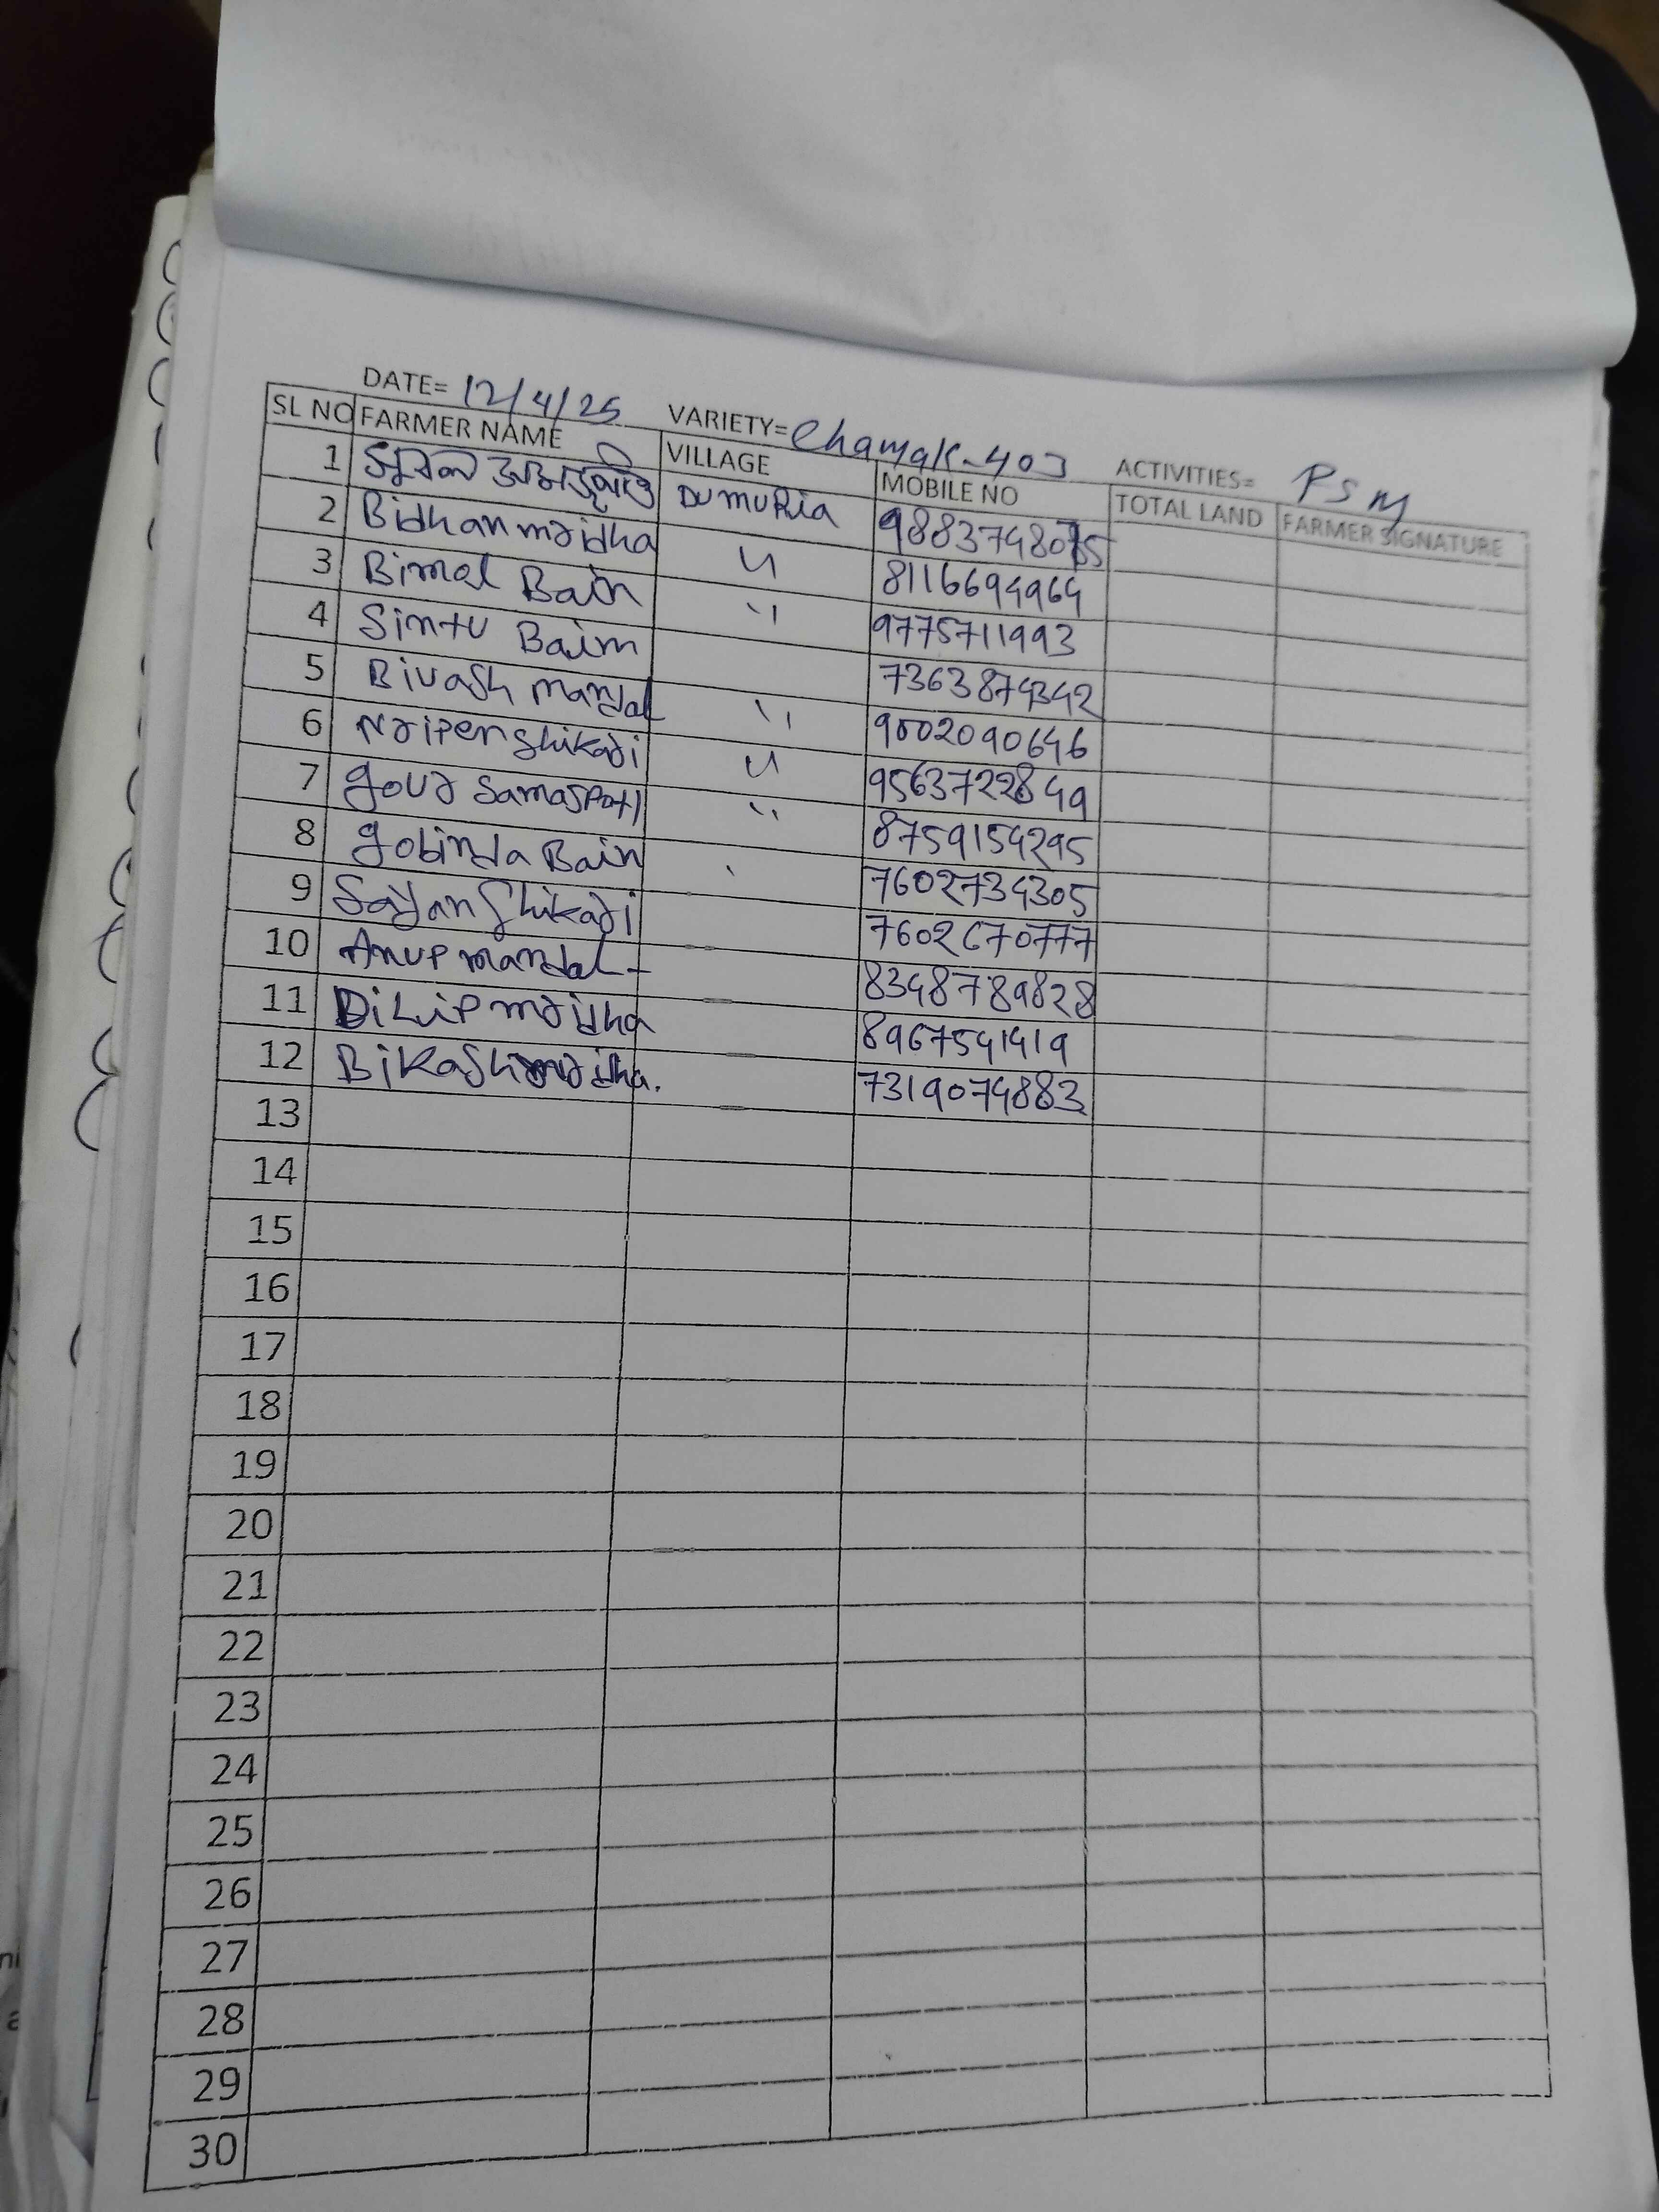 DATE= 12/4/25 VARIETY= Chamak-403 ACTIVITIES= PSM
SL NO FARMER NAME VILLAGE MOBILE NO TOTAL LAND FARMER SIGNATURE
1 DUMURIA
2 Bidhan mridha 8116694964
3 Bimal Bain 9775711993
4 Sintu Bain 7363874342
5 Bivash mandal 9002090646
6 Nripen Shikari 9563722849
7 gour Samaspati 8759154295
8 gobinda Bain 7602734305
9 Sayan Shikari 7602670777
10 Anup mandal 8348789828
11 Dilip mridha 8967541419
12 Bikash mridha. 7319074883
13
14
15
16
17
18
19
20
21
22
23
24
25
26
27
28
29
30